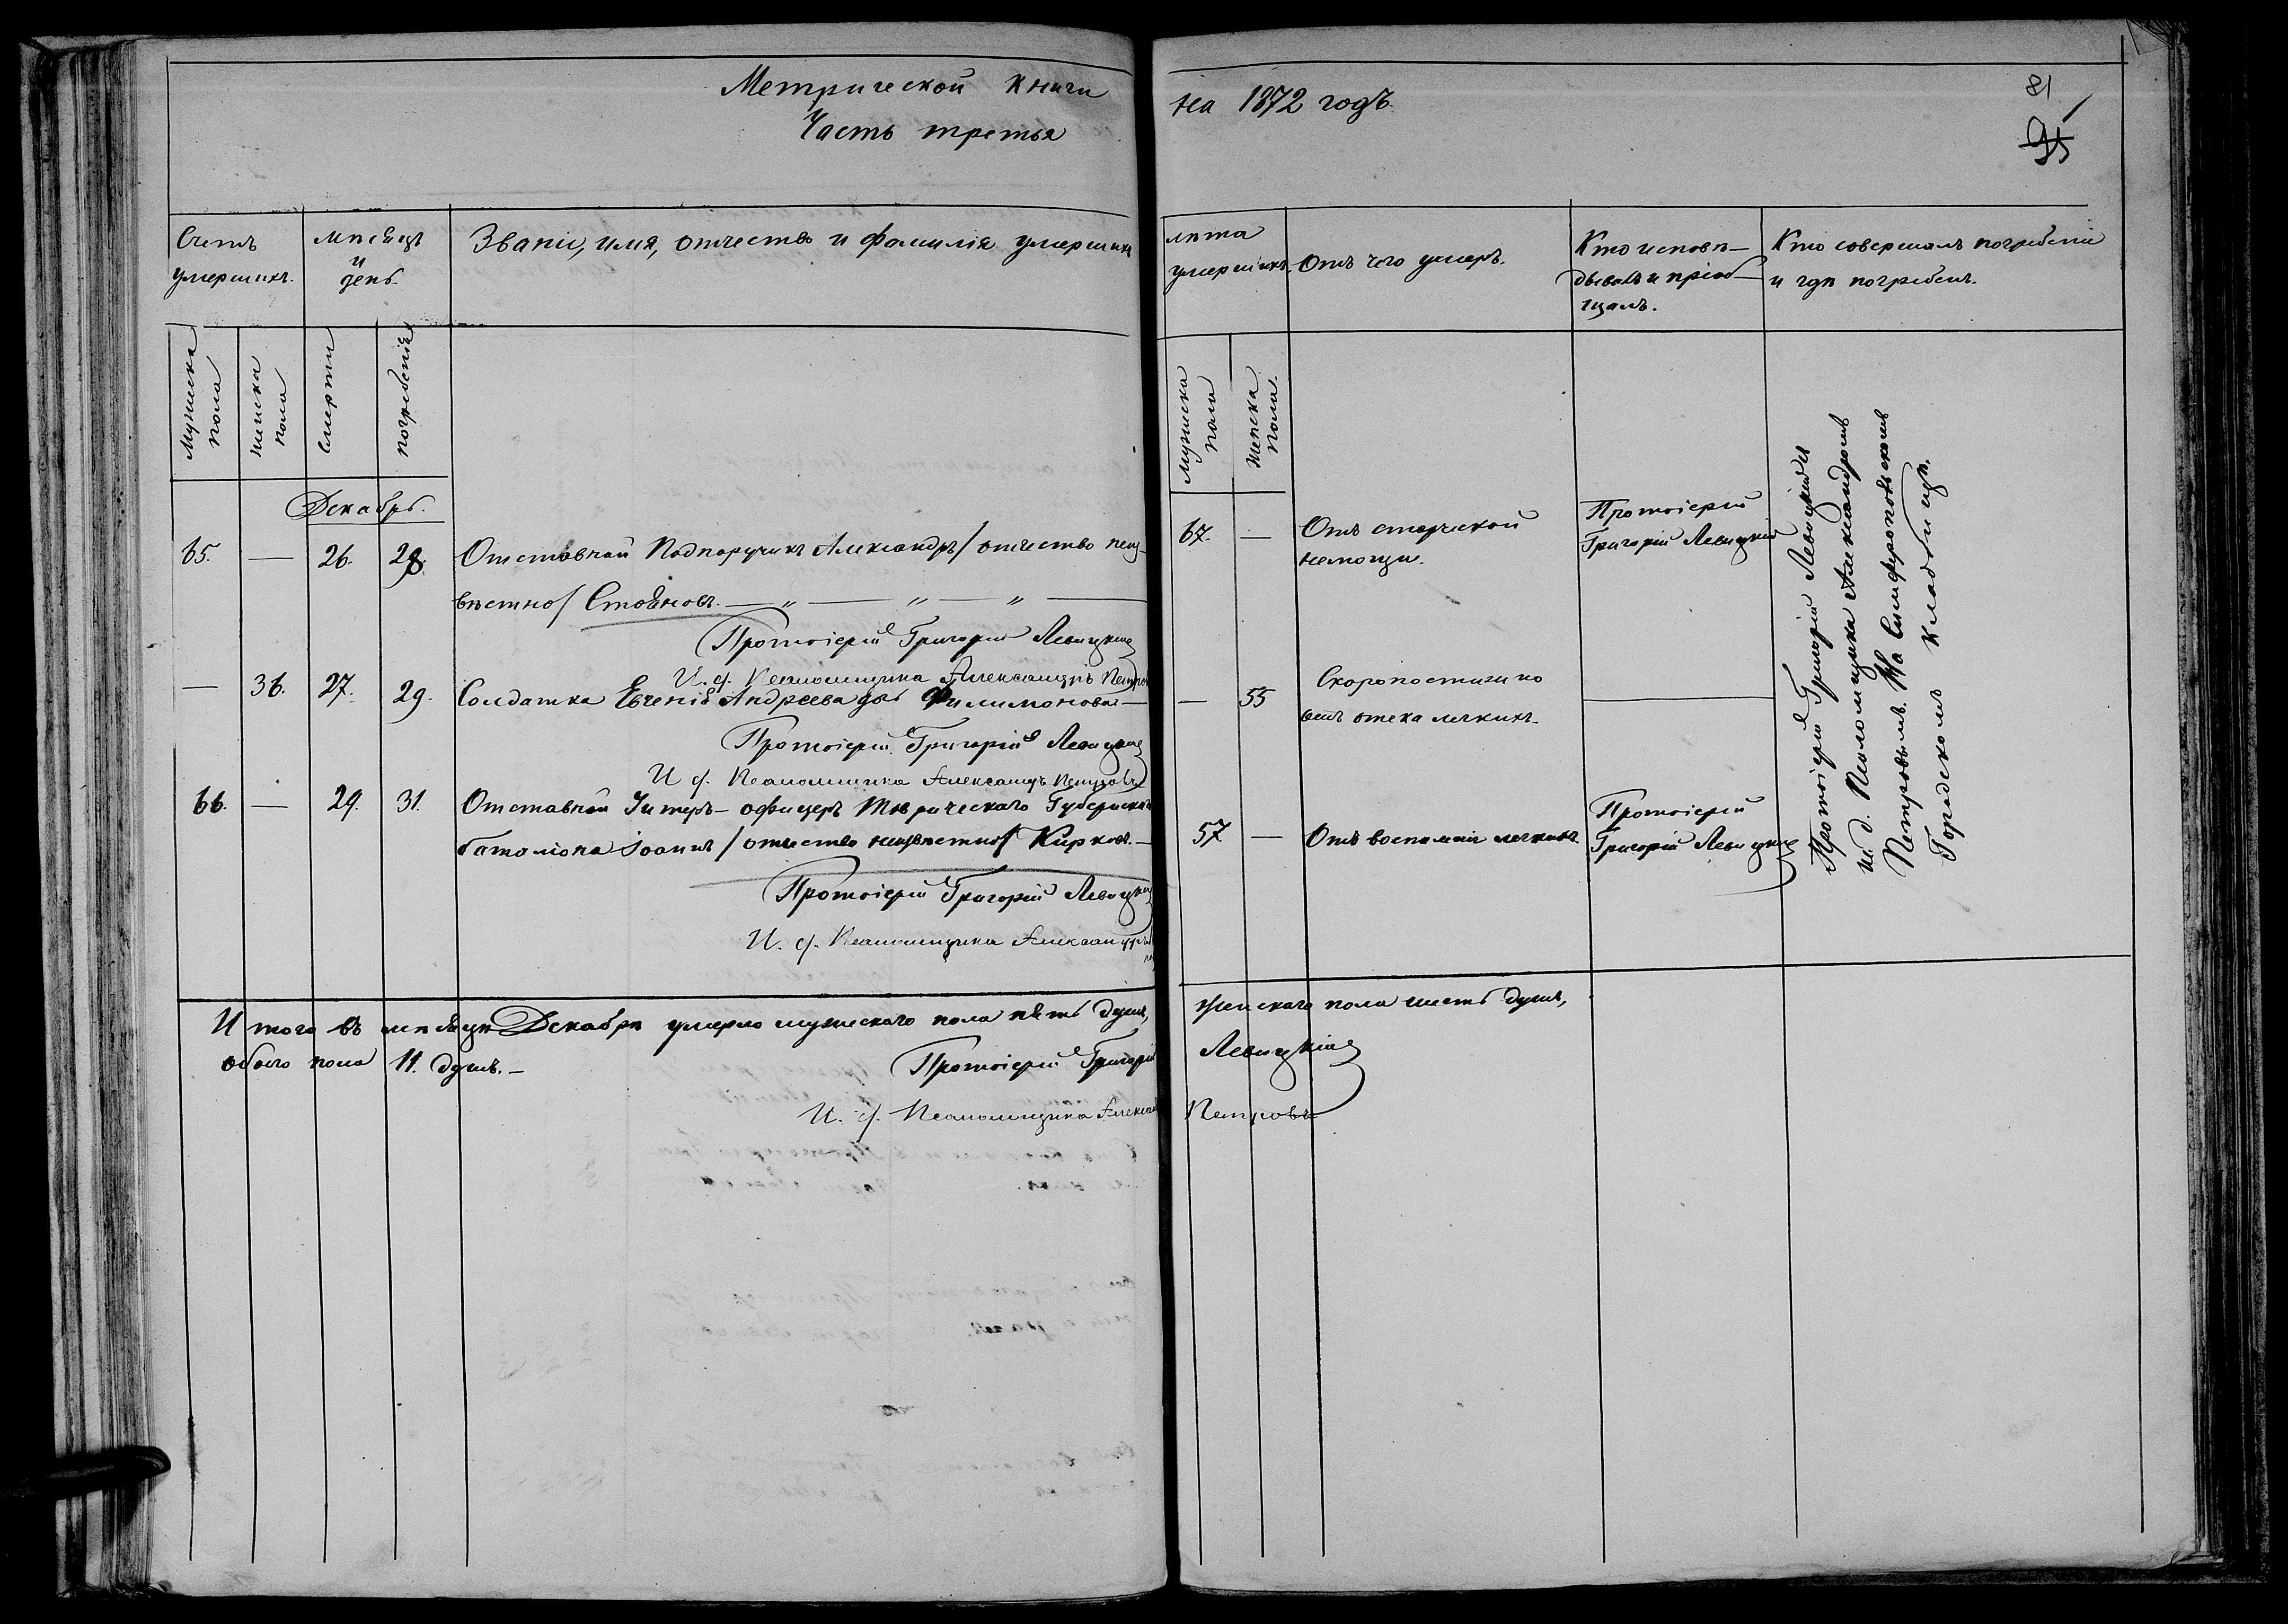 Метрической Книги
Часть третья
на 1872 годъ.
81
95
Счетъ умершихъ.
мѣсяцъ и день.
Званіе, имя, отчество и фамилія умершихъ
лѣта умершихъ.
Отъ чего умеръ.
Кто исповѣ-
дывалъ и пріоб-
щалъ.
Кто совершалъ погребеніе
и гдѣ погребенъ.
Мужеска пола
женска пола
Смерти
погребенія
Мужеска пола
женска пола.
Декабрь.
65. — 26. 28. Отставной Подпоручикъ Александръ / отчество неиз-
вѣстно / Стояновъ. — „ — „ — „ —
67. — Отъ старческой
немощи.
Протоіерей
Григорій Левицкій
Протоіерей Григорій Левицкій
И. д. Псаломщика Александръ Петровъ
— 36. 27. 29. Солдатка Евгенія Андреева дочь Филимонова —
— 55 Скоропостижно
отъ отека легкихъ.
Протоіерей Григорій Левицкій
И д. Псаломщика Александръ Петровъ
66. — 29. 31. Отставной Унтеръ-офицеръ Таврическаго Губернскаго
баталіона Іоаннъ / отчество неизвѣстно / Кирковъ. —
57 — Отъ воспаленія легкихъ.
Протоіерей
Григорій Левицкій
Протоіерей Григорій Левицкій
И. д. Псаломщика Александръ
Протоіерей Григорій Левицкій
и. д. Псаломщика Александромъ
Петровымъ. На Симферопольскомъ
Городскомъ кладбищѣ.
Итого въ мѣсяцѣ Декабрѣ умерло мужескаго пола пять душъ, женскаго пола шесть душъ,
обоего пола 11. душъ. —
Протоіерей Григорій Левицкій
И. д. Псаломщика Александръ Петровъ